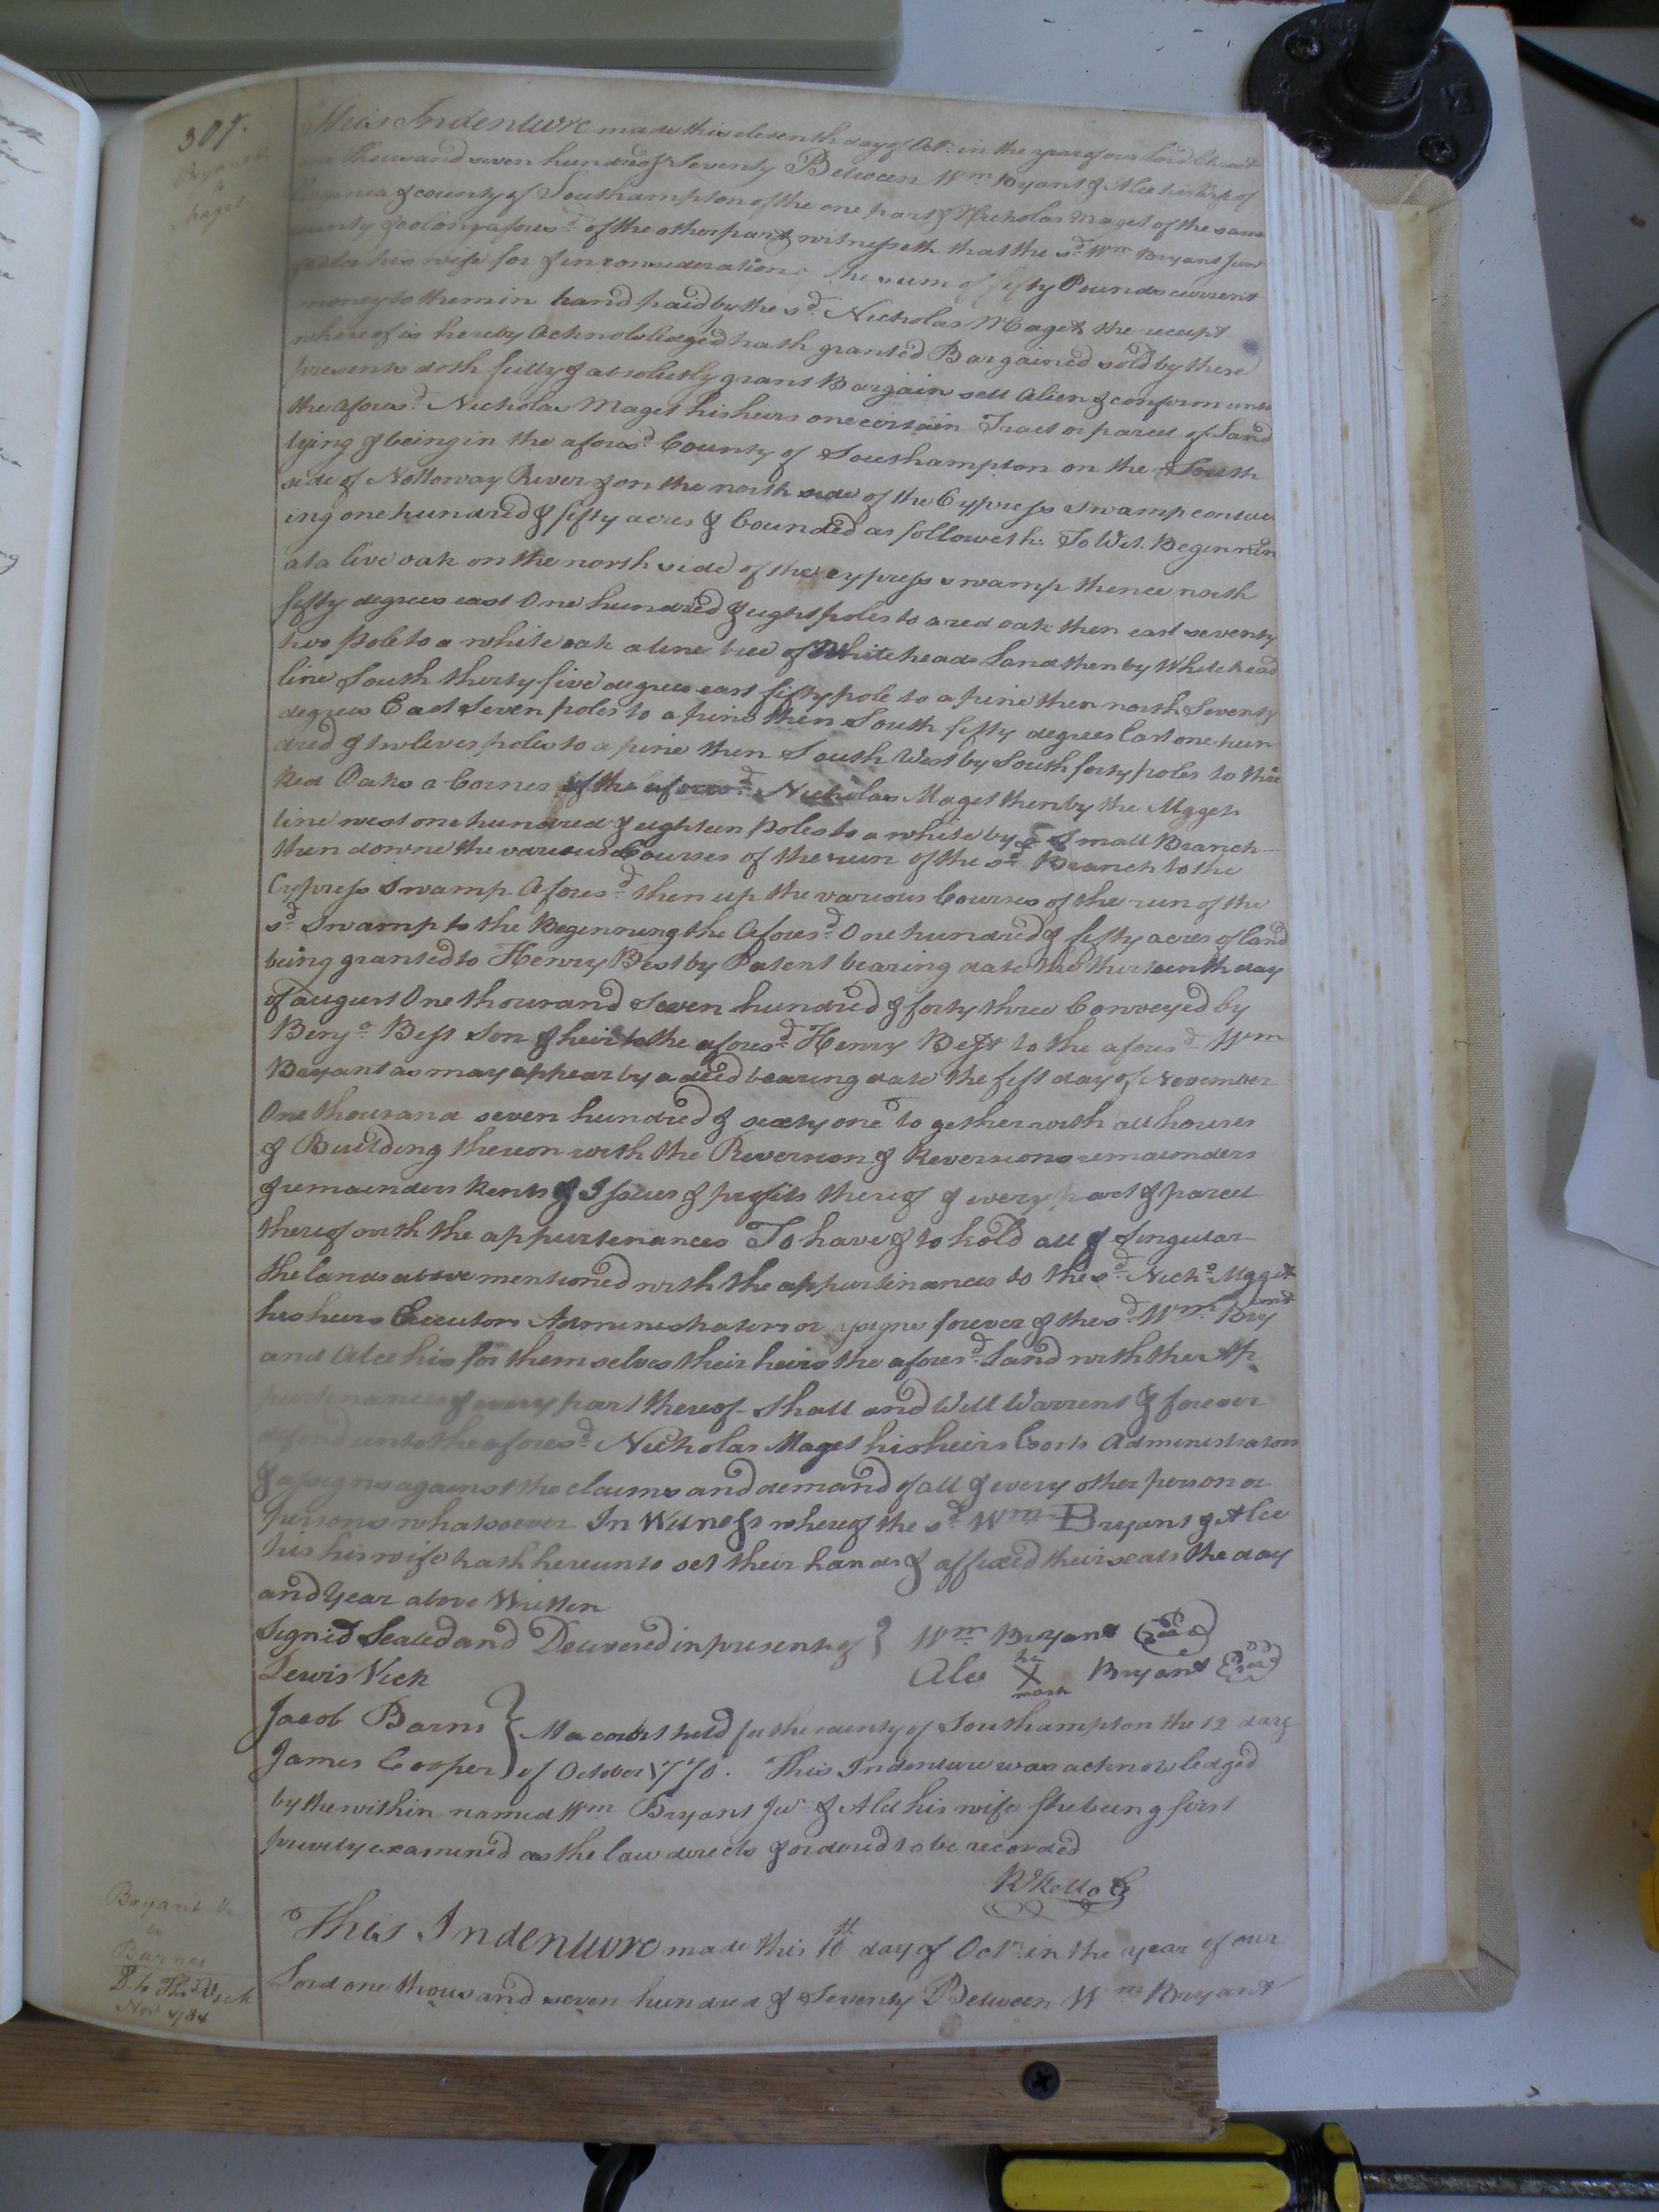 307.
Bryant &c
to
Maget
This Indenture made this eleventh day of Octr. in the year of our Lord Christ
one thousand seven hundred & Seventy Between Wm Bryant & Alce his Wife of
& county of Southampton of the one part & Nicholas Maget of the same
county & colony afores.d of the other part witnesseth that the s.d Wm Bryant Junr
his wife for & in consideration of the sum of fifty Pounds current
money to them in hand paid by the s.d Nicholas Maget the receipt
whereof is hereby Acknowledged hath granted Bargained sold by these
presents doth fully & absolutely grant Bargain sell Alien & confirm unto
the afores.d Nicholas Maget his heirs one certain Tract or parcel of Land
lying & being in the afores.d County of Southampton on the South
side of Nottoway River & on the north side of the Cypress swamp contain
ing one hundred & fifty acres & bounded as followeth. To Wit. Beginnin
at a live oak on the north side of the cypress swamp thence north
fifty degrees east One hundred & eight poles to a red oak then east seventy
two pole to a white oak a line tree of Whiteheads Land then by Whitehead
line South thirty five degrees east fifty pole to a pine then north Seventy
degrees East Seven poles to a pine then South fifty degrees East one hun
dred & twleves poles to a pine then South West by South forty poles to thre
Red Oaks a Corner of the afores.d Nicholas Maget then by the Magget
line west one hundred & eighteen Poles to a white by Small Branch
then downe the various Courses of the run of the s.d Branch to the
Cypress Swamp Afores.d then up the various Courses of the run of the
s.d Swamp to the Beginning the Afores.d One hundred & fifty acres of land
being granted to Henry Best by Patent bearing date the thirteenth day
of august One thousand Seven hundred & forty three Conveyed by
Benj.a Best Son & heir to the afores.d Henry Best to the afores.d Wm
Bryant as may appear by a deed bearing date the fift day of November
One thousand seven hundred & sixty one to gether with all houses
& Building thereon with the Reversion & Reversions remainders
& remainders Rents & Issues & profits thereof & every part & parcel
thereof with the appurtenances To have & to hold all & Singular
the lands above mentioned with the appurtinances to the s.d Nich.o Magget
his heirs Executors Administrators or assigns forever & the s.d Wm Bryant
and Alce his for them selves their heirs the afores.d Land with the Ap
purtenances & every part thereof shall and Will Warrent & forever
defend unto the afores.d Nicholas Maget his heirs Exors Administrators
& assigns against the claims and demand of all & every other person or
persons whatsoever In Witness whereof the s.d Wm Bryant & Alce
his his wife hath hereunto set their hands & affixed their seals the day
and Year above Written
Signed Sealed and Delivered in presents of } Wm Bryant (Seal)
Lewis Vick Alce her X mark Bryant (Seal)
Jacob Barns } At a court held for the county of Southampton the 12 day
James Cooper } of October 1770. This Indenture was acknowledged
by the within named Wm Bryant Jur & Alce his wife she being first
privily examined as the law directs & ordered to be recorded
R Kello C
Bryant &c
to
Barnes
D. to Tho.s Vick
Nov 1784
This Indenture made this 10th day of Octr in the year of our
Lord one thousand seven hundred & Seventy Between Wm Bryant